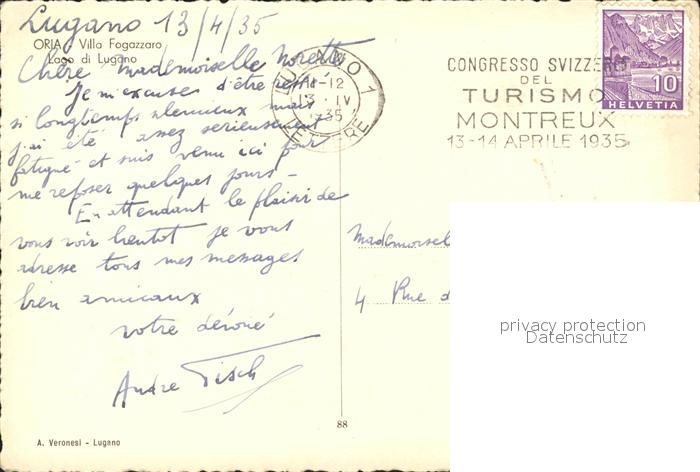 Lugano 13/4/35
ORIA - Villa Fogazzaro
Lago di Lugano
Chère Mademoiselle Norette
Je m'excuse d'être resté
si longtemps silencieux mais
j'ai été assez serieusement
fatigué et suis venu ici pour
me reposer quelques jours -
En attendant le plaisir de
vous voir bientot je vous
adresse tous mes messages
bien amicaux
votre dévoué
André Tisch
A. Veronesi - Lugano
88
LUGANO 1
11-12
13.IV
1935
LETTERE
CONGRESSO SVIZZERO
DEL
TURISMO
MONTREUX
13-14 APRILE 1935
10
HELVETIA
Mademoisel
4 Rue d
privacy protection
Datenschutz